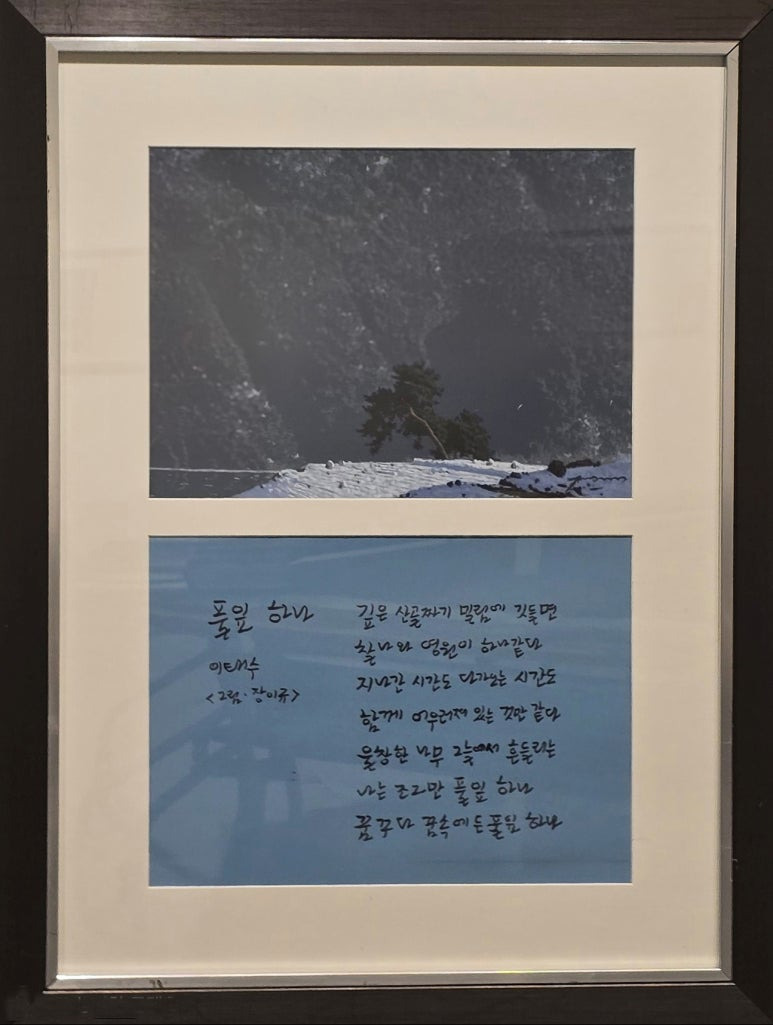 풀잎 하나
이태수
<그림·장이규>
깊은 산골짜기 밀림에 깃들면
찰나와 영원이 하나같다
지나간 시간도 다가오는 시간도
함께 어우러져 있는 것만 같다
울창한 나무 그늘에서 흔들리는
나는 조그만 풀잎 하나
꿈꾸다 꿈속에 든 풀잎 하나